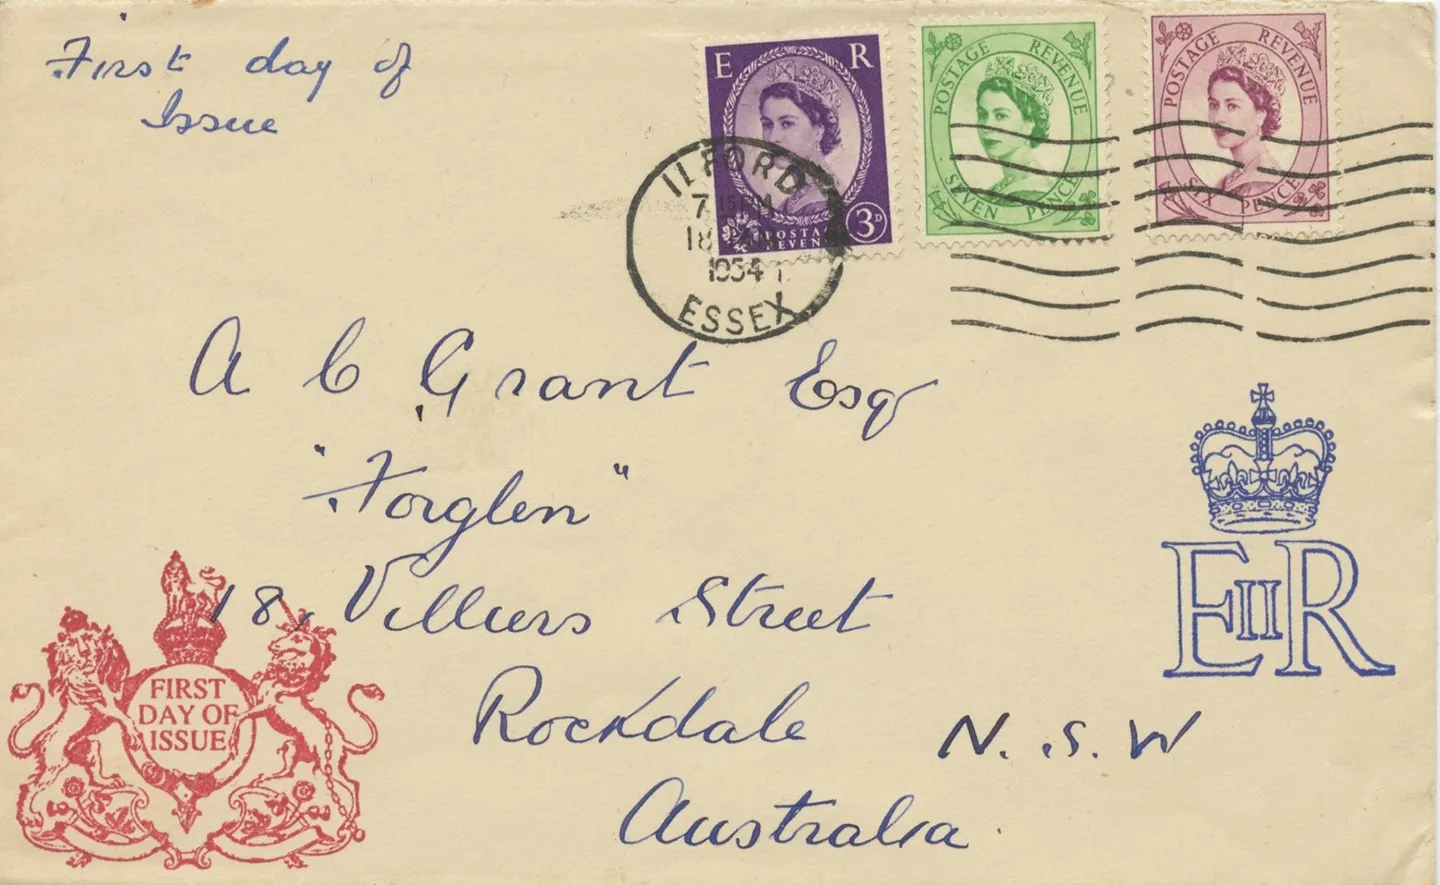 First day of
Issue
E R
3D
POSTAGE REVENUE
POSTAGE REVENUE
SEVEN PENCE
POSTAGE REVENUE
SIX PENCE
ILFORD
18
1954
ESSEX
A C Grant Esq
"Forglen"
18, Villiers Street
Rockdale N.S.W
Australia.
FIRST
DAY OF
ISSUE
EIIR